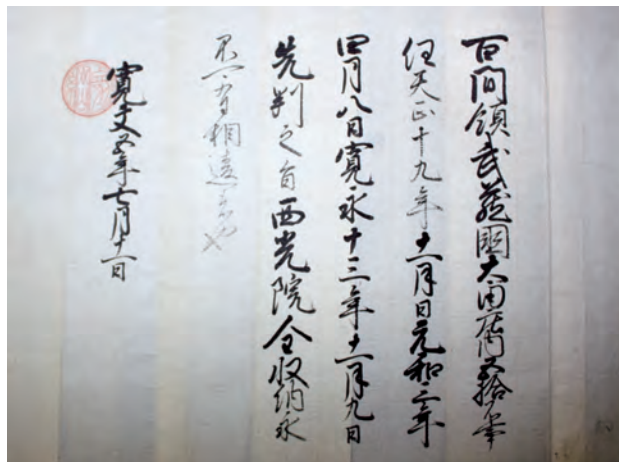 百間領武蔵國大田庄内五拾石事
任天正十九年十一月日元和三年
四月八日寛永十三年十一月九日
先判之旨西光院全収納永
不可有相違者也
寛文五年七月十一日